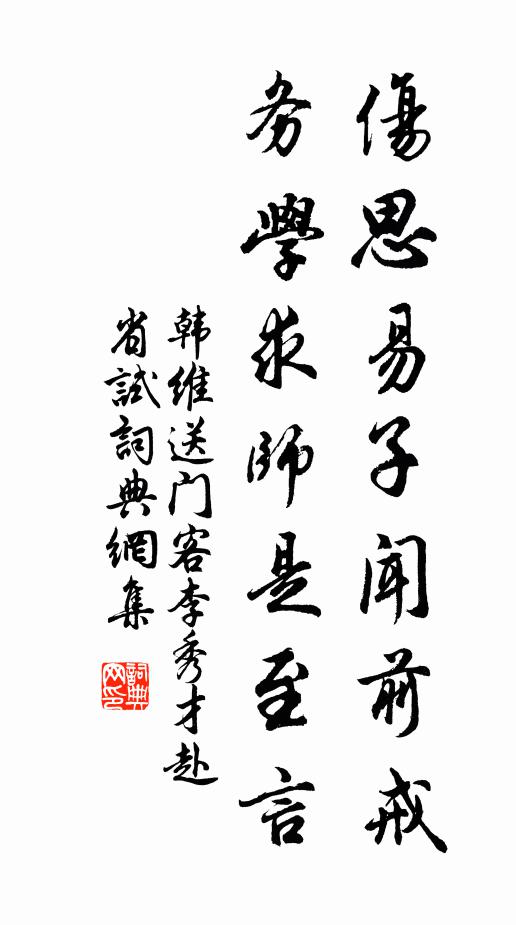 傷思易子闻前戒
务學求師是至言
韩維送门客李秀才赴
省試詞典網集
詞典网印